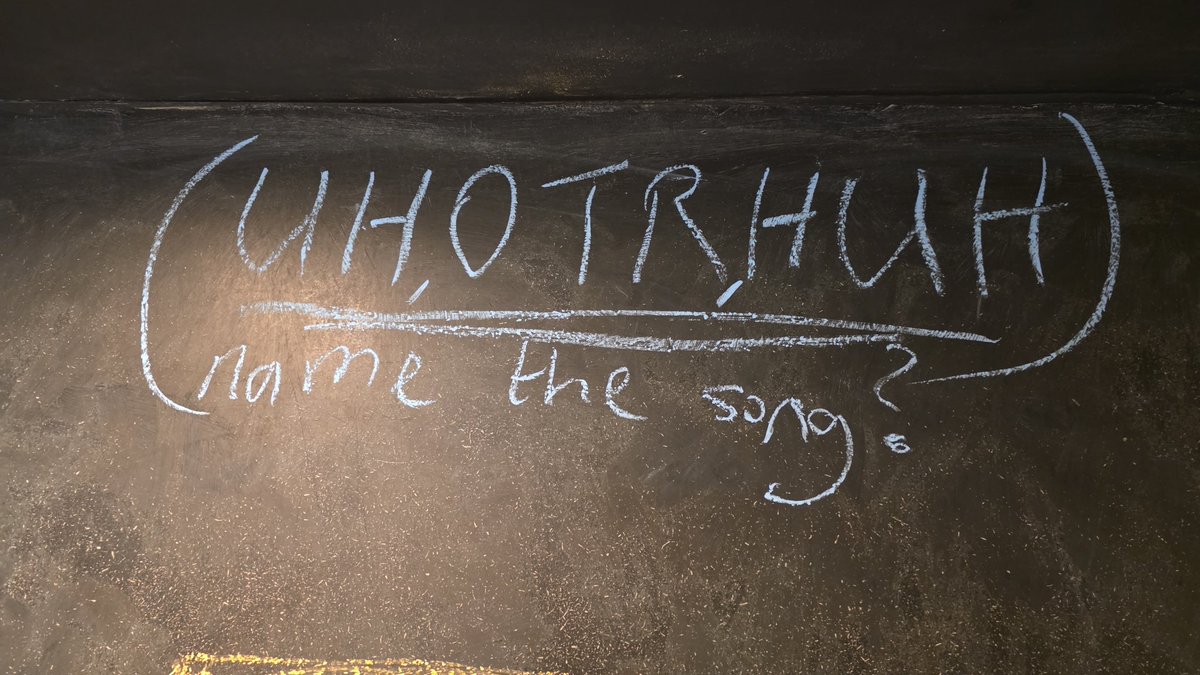 (UH,OTR,HUH)
name the song?